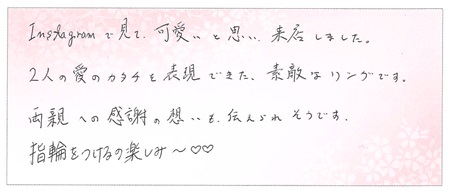 Instagramで見て、可愛いと思い、来店しました。
2人の愛のカタチを表現できた、素敵なリングです。
両親への感謝の想いも、伝えられそうです。
指輪をつけるの楽しみ〜♡♡